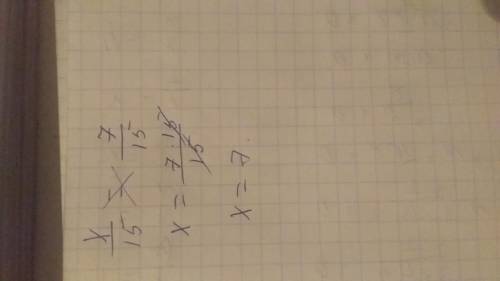 x/15 = 7/15
x = 7·15/15
x = 7.